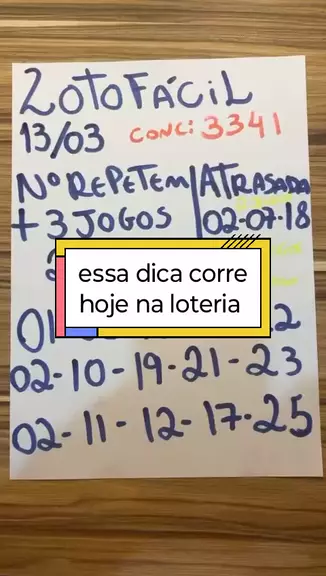 LOTOFÁCIL
13/03 CONC: 3341
Nº REPETEM ATRASADA
+ 3 JOGOS 02-07-18
essa dica corre
hoje na loteria
02-10-19-21-23
02-11-12-17-25